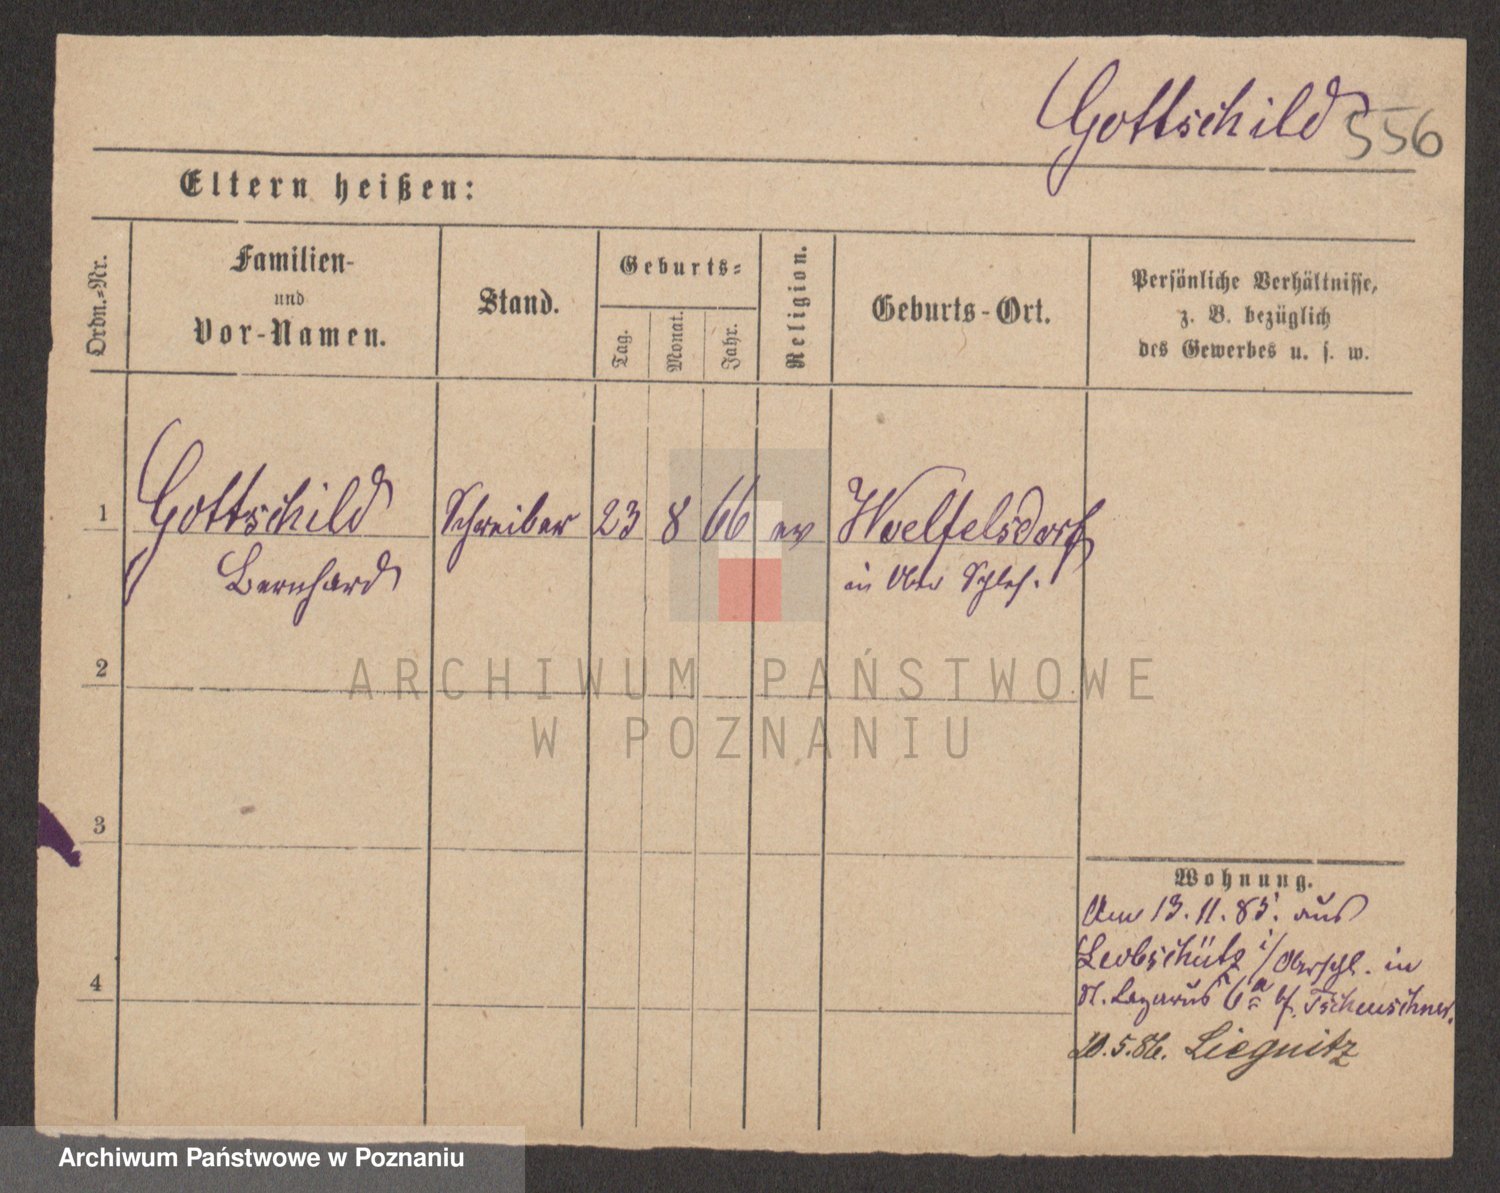 Gottschild 556
Eltern heißen:
Ordn.-Nr.
Familien-
und
Vor-Namen.
Stand.
Geburts-
Tag.
Monat.
Jahr.
Religion.
Geburts-Ort.
Persönliche Verhältnisse,
z. B. bezüglich
des Gewerbes u. s. w.
1 Gottschild Schreiber 23 8 66 ev Woelfelsdorf
Bernhard in Ober Schles.
2
ARCHIWUM PAŃSTWOWE
W POZNANIU
3
Wohnung.
Am 13.11.85. aus
Leobschütz i/Oberschl. in
St. Lazarus 6a b/. Tscheuschner.
4
20.5.86. Liegnitz
Archiwum Państwowe w Poznaniu